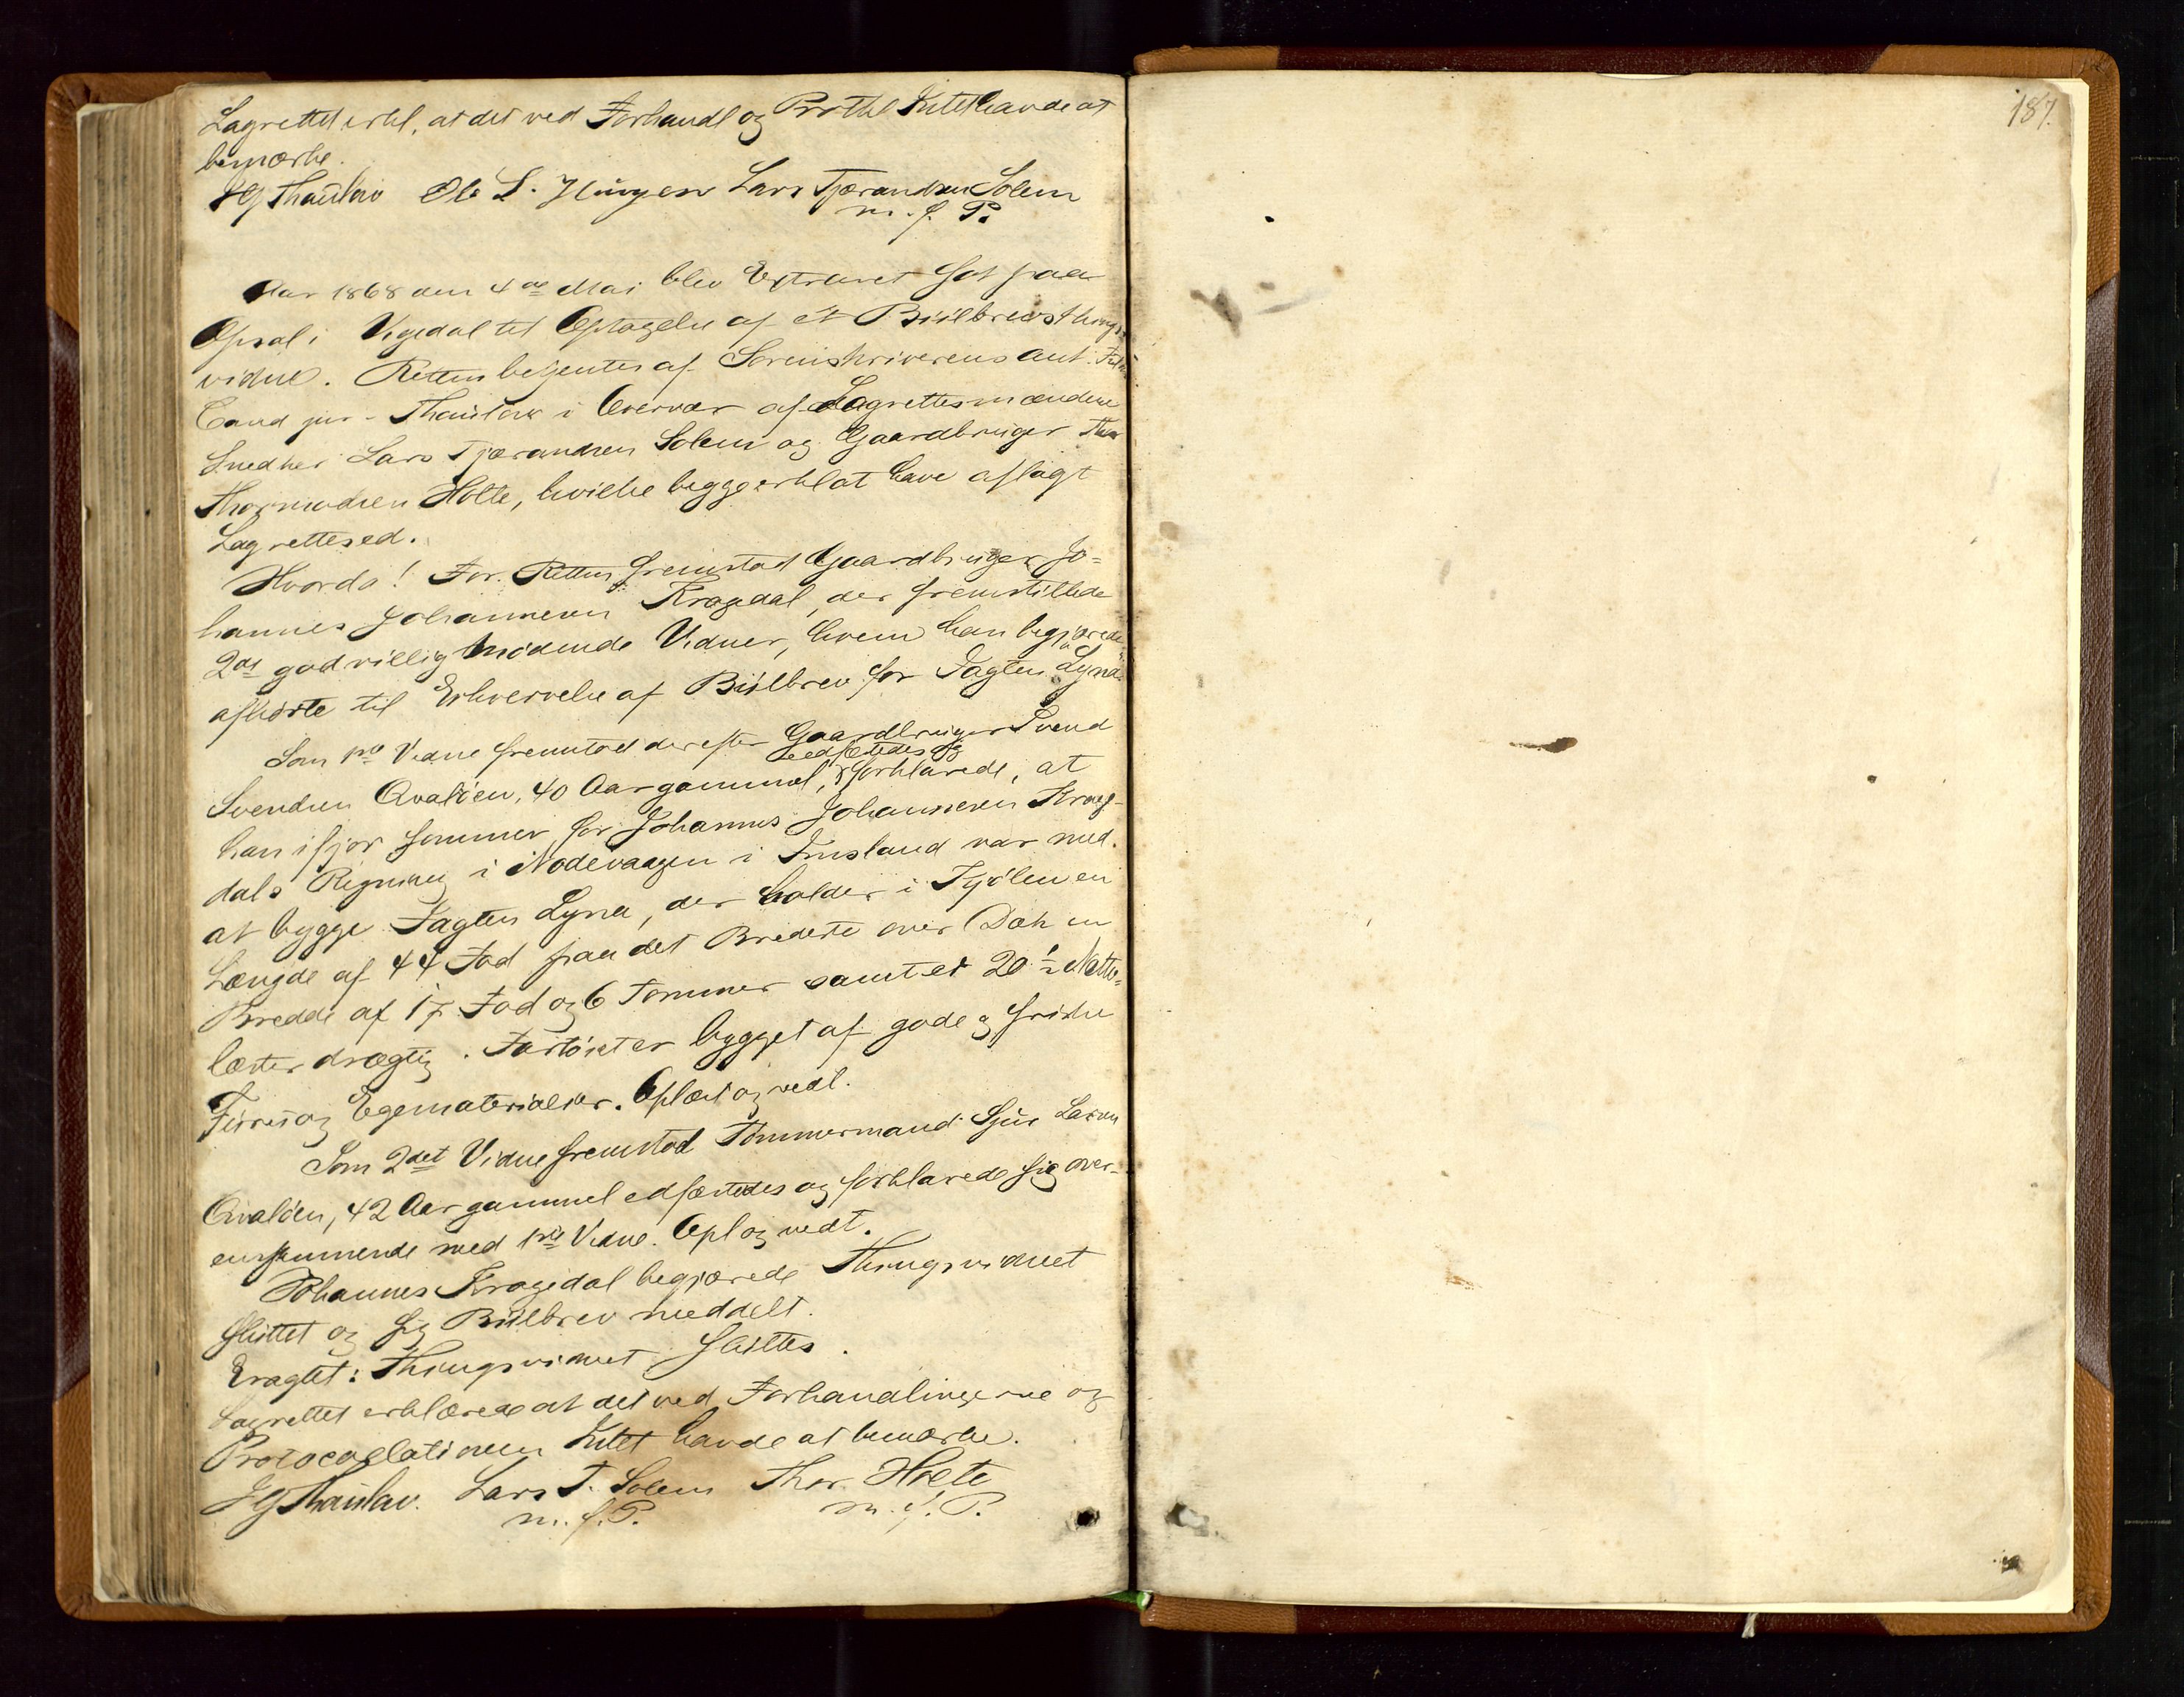 Lagrettet erkl. at det ved Forhandl og Prothl Intet havde at
bemærke.
HGThaulow Ole L. Lars Tjerandsen Solem
m. f. P.
Aar 1868 den 4de Mai blev Extraret sat paa
Opsal i Vigedal til Optagelse af et Biilbrevsthings
vidne. Retten betjentes af Sorenskriverens aut. Fuldm
Cand jur. Thaulow i Overvær af Lagrettesmændene
Snedker Lars Tjærandsen Solem og Gaardbruger Thor
Thormodsen Holte, hvilke begge erkl at have aflagt
Lagrettesed.
Hvorda! For Retten fremstod Gaardbruger Jo=
hannes Johannesen Kragedal, der fremstillede
2de godvillig mødende Vidner, hvem han begjærede
afhørte til Erhvervelse af Biilbrev for Jagten Lyna.
Som 1ste Vidne fremstod derefter Gaardbruger Svend
edfæstedes og
Svendsen Qvaløen, 40 Aar gammel, forklarede, at
han ifjor Sommer for Johannes Johannesen Krage-
dals Regning i Nodevaagen i Imsland var med
at bygge Jagten Lyna, der holder i Kjølen en
Længde af 44 Fod paa det Bredeste over Dæk en
Bredde af 17 Fod og 6 Tommer samt er 20½ Netto=
læster drægtig. Fartøiet er bygget af gode og friske
Furru og Egematerialier. Oplæst og vedt.
Som 2det Vidne fremstod Tømmermand Sjur Larsen
Qvaløen, 42 Aar gammel edfæstedes og forklarede sig over-
ensstemmende med 1ste Vidne. Opl og vedt.
Johannes Kragedal begjærede Thingsvidnet
sluttet og sig Biilbrev meddelt.
Eragtet: Thingsvidnet sluttes.
Lagrettet erklærede at det ved Forhandlingerne og
Protocollationen Intet havde at bemærke.
HGThaulow. Lars T. Solem Thor Holte
m. f. P. m. f. P.
187.